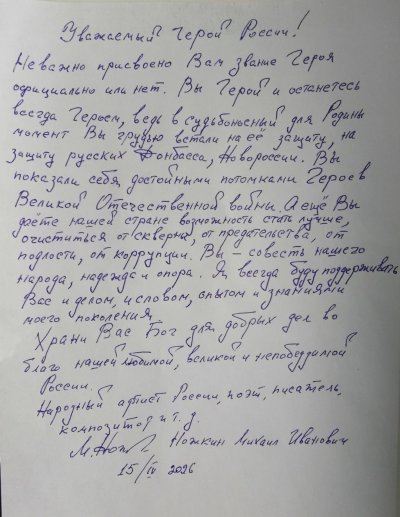 Уважаемый Герой России!
Неважно присвоено Вам звание Героя
официально или нет. Вы Герой и останетесь
всегда Героем, ведь в судьбоносный для Родины
момент Вы грудью встали на её защиту, на
защиту русских Донбасса, Новороссии. Вы
показали себя достойными потомками Героев
Великой Отечественной войны. А ещё Вы
даёте нашей стране возможность стать лучше,
очиститься от скверны, от предательства, от
подлости, от коррупции. Вы – совесть нашего
народа, надежда и опора. Я всегда буду поддерживать
Вас и делом, и словом, опытом и знаниями
моего поколения.
Храни Вас Бог для добрых дел во
благо нашей любимой, великой и непобедимой
России.
Народный артист России, поэт, писатель,
композитор и т. д.
М. Нож Ножкин Михаил Иванович
15/IV 2026